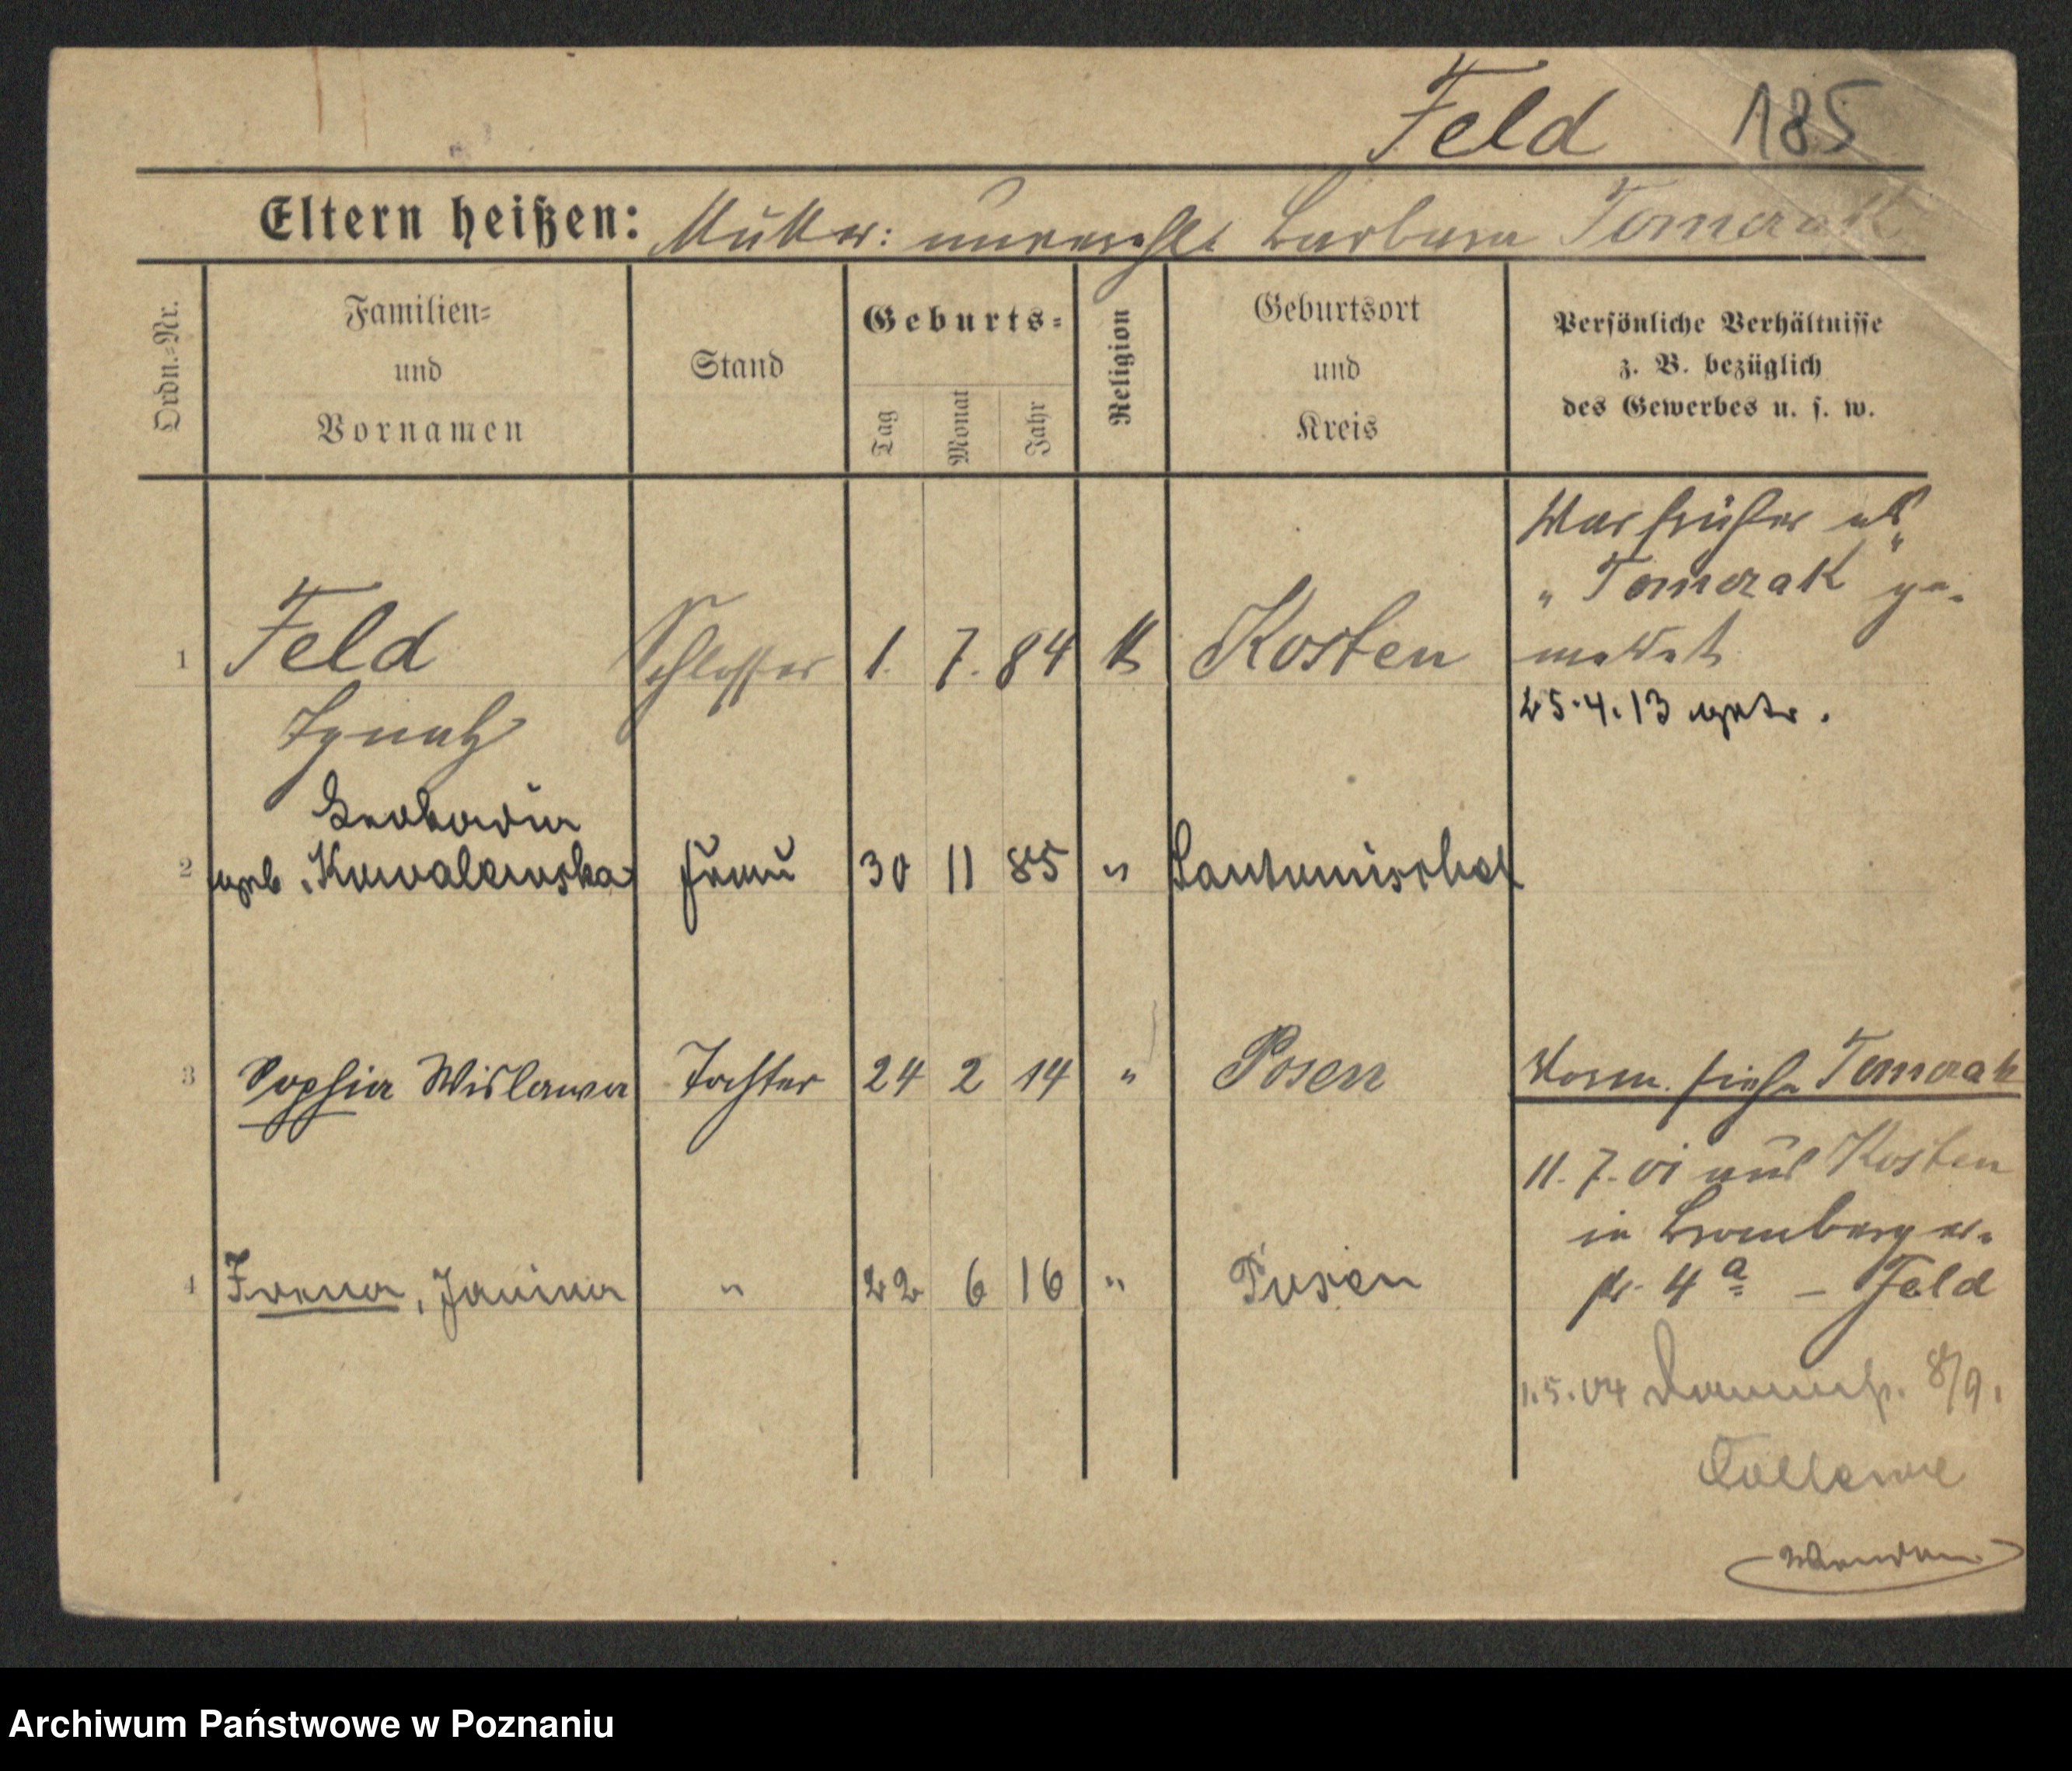 Feld 185
Eltern heißen: Mutter: unverehel. Barbara Tomczak
Ordn.-Nr.
Familien-
und
Vornamen
Stand
Geburts-
Tag
Monat
Jahr
Religion
Geburtsort
und
Kreis
Persönliche Verhältnisse
z. B. bezüglich
des Gewerbes u. s. w.
War früher als
"Tomczak" ge-
meldet
1 Feld Schlosser 1. 7. 84 k Kosten
25.4.13 getr.
Ignatz
2 geb. Kowalewska Frau 30 11 85 " Santomischel
3 Sophia Wislawa Tochter 24 2 14 " Posen Vorm. siehe Tomczak
11.7.01 aus Kosten
in Bromberger-
str. 4a – Feld
4 Irena, Janina " 22 6 16 " Posen
1.5.04 8/9.